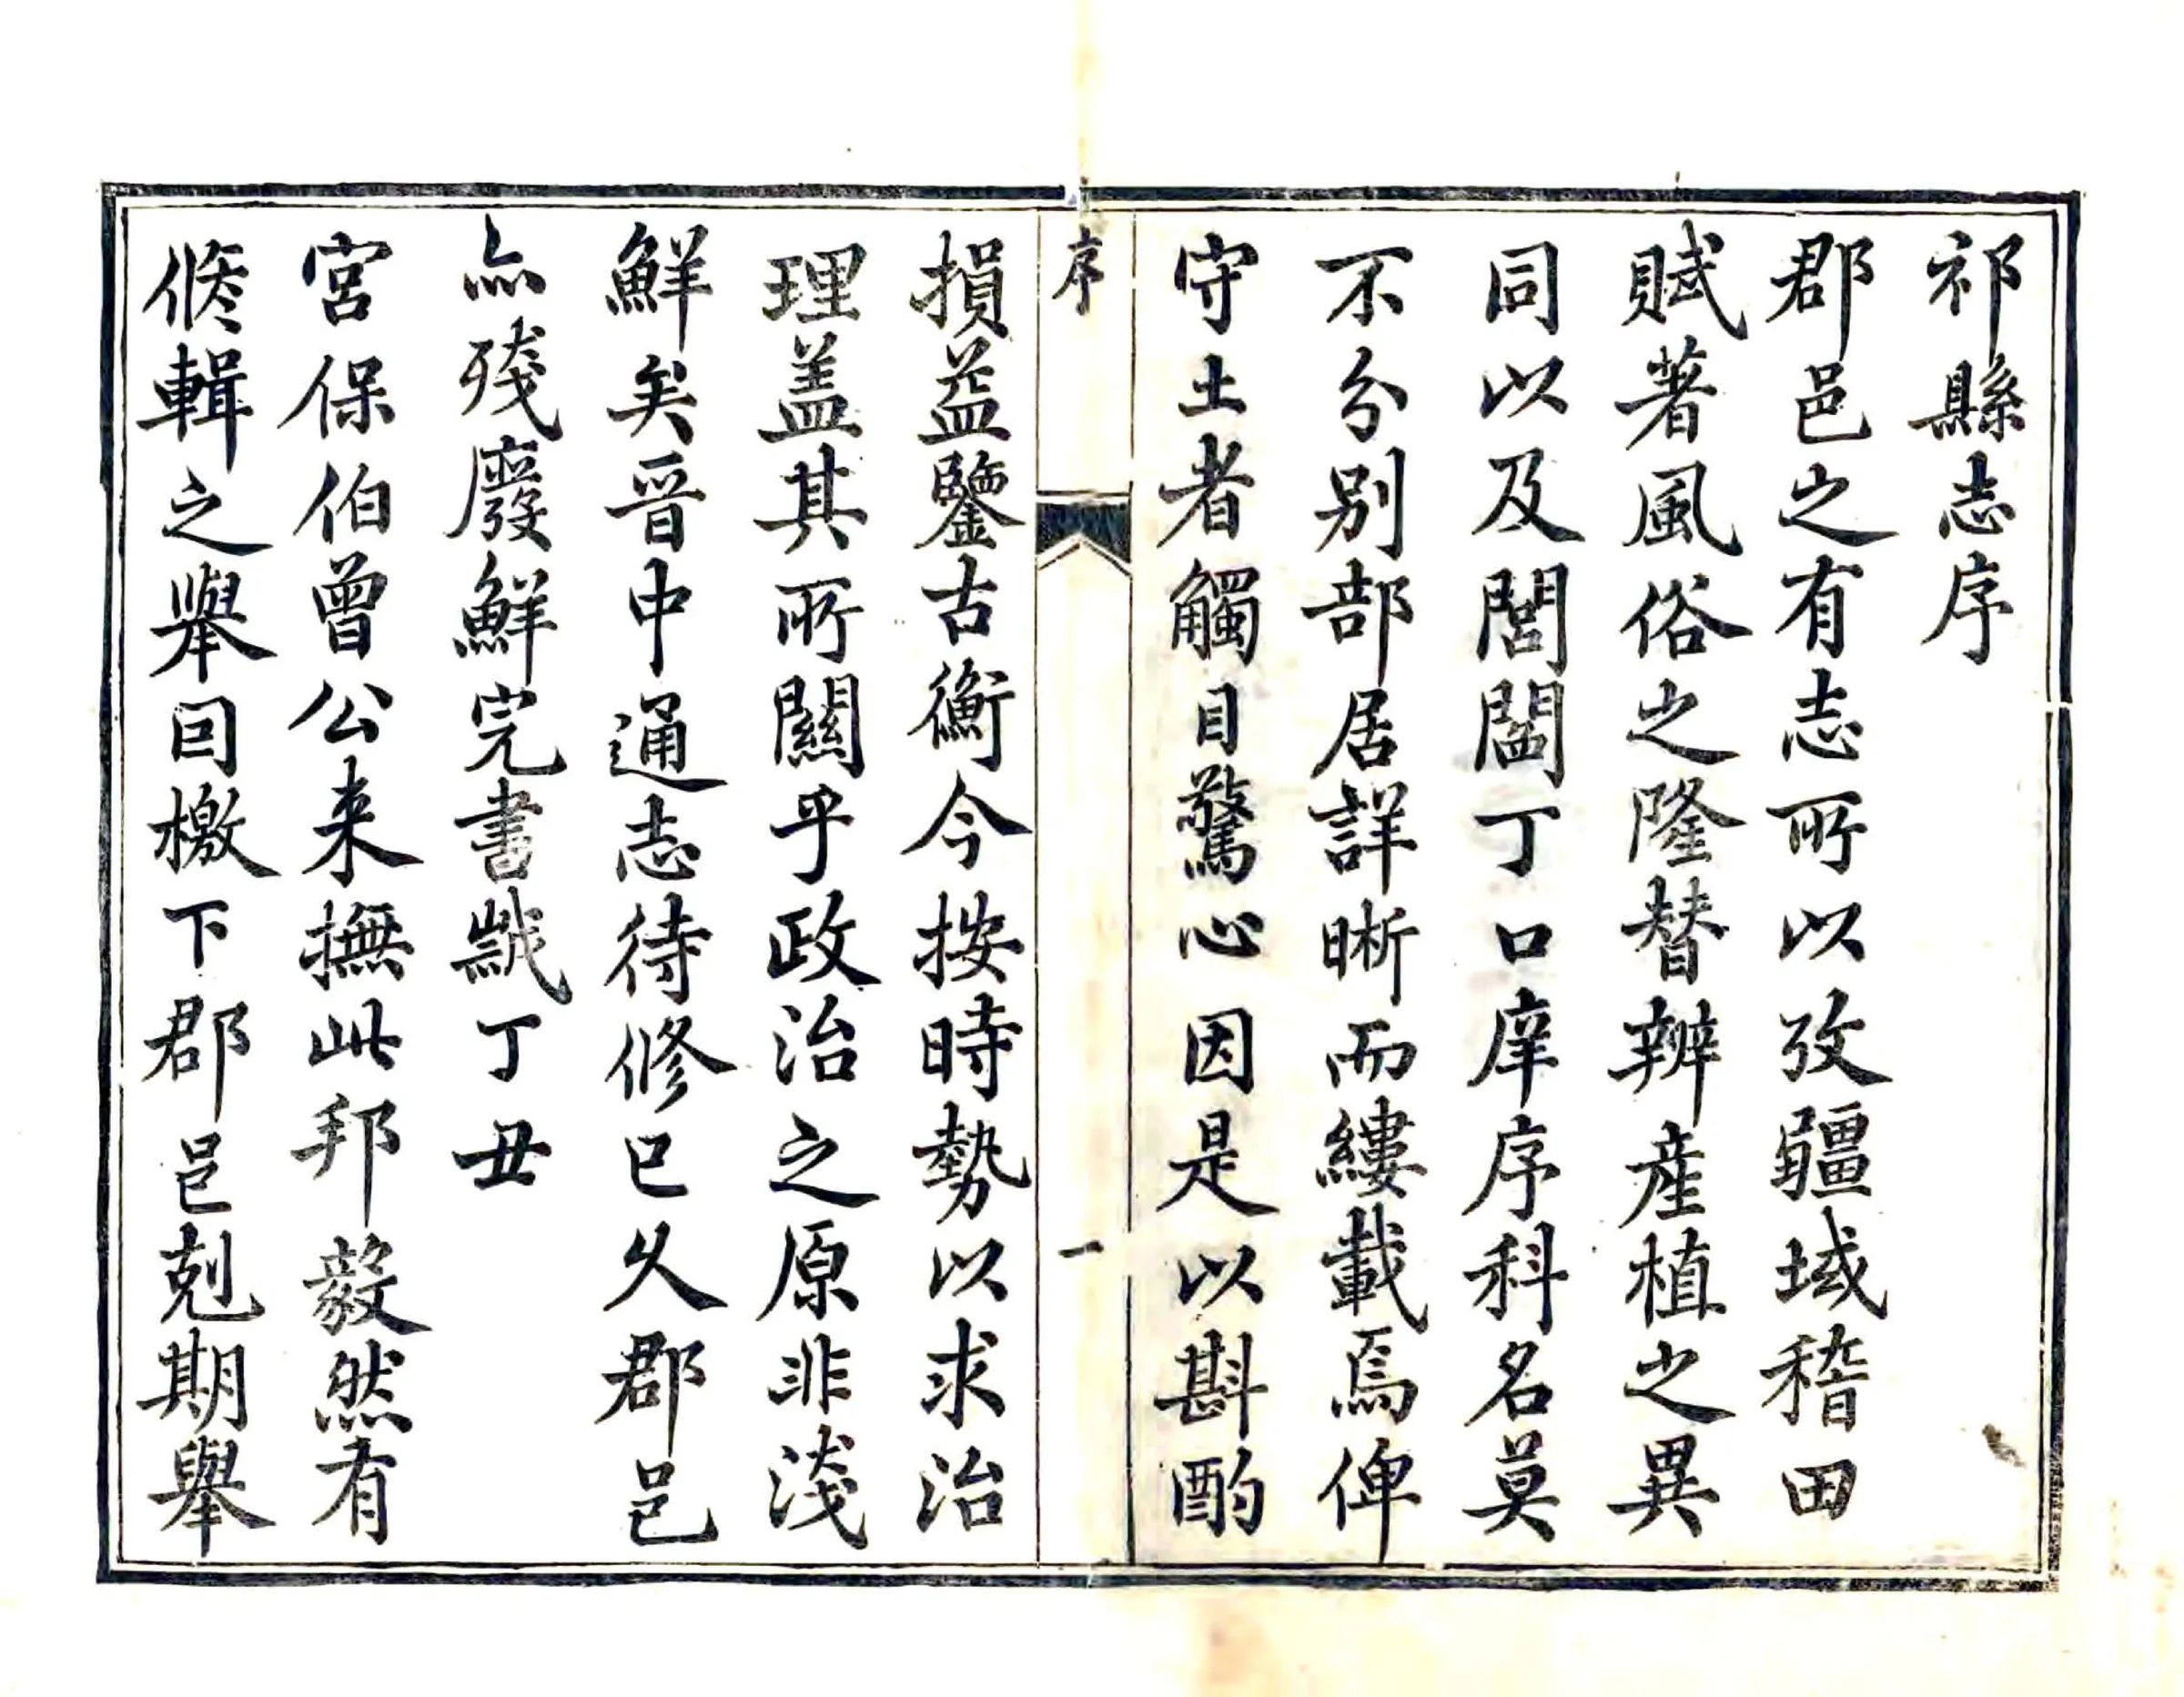 祁縣志序
郡邑之有志所以攷疆域稽田
賦著風俗之隆替辨產植之異
同以及閭閻丁口庠序科名莫
不分別部居詳晰而縷載焉俾
守土者觸目驚心因是以斟酌
序
一
損益鑒古衡今按時勢以求治
理盖其所關乎政治之原非淺
鮮矣晉中通志待修已久郡邑
亦殘廢鮮完書歲丁丑
宮保伯曾公来撫此邦毅然有
修輯之舉回檄下郡邑剋期舉